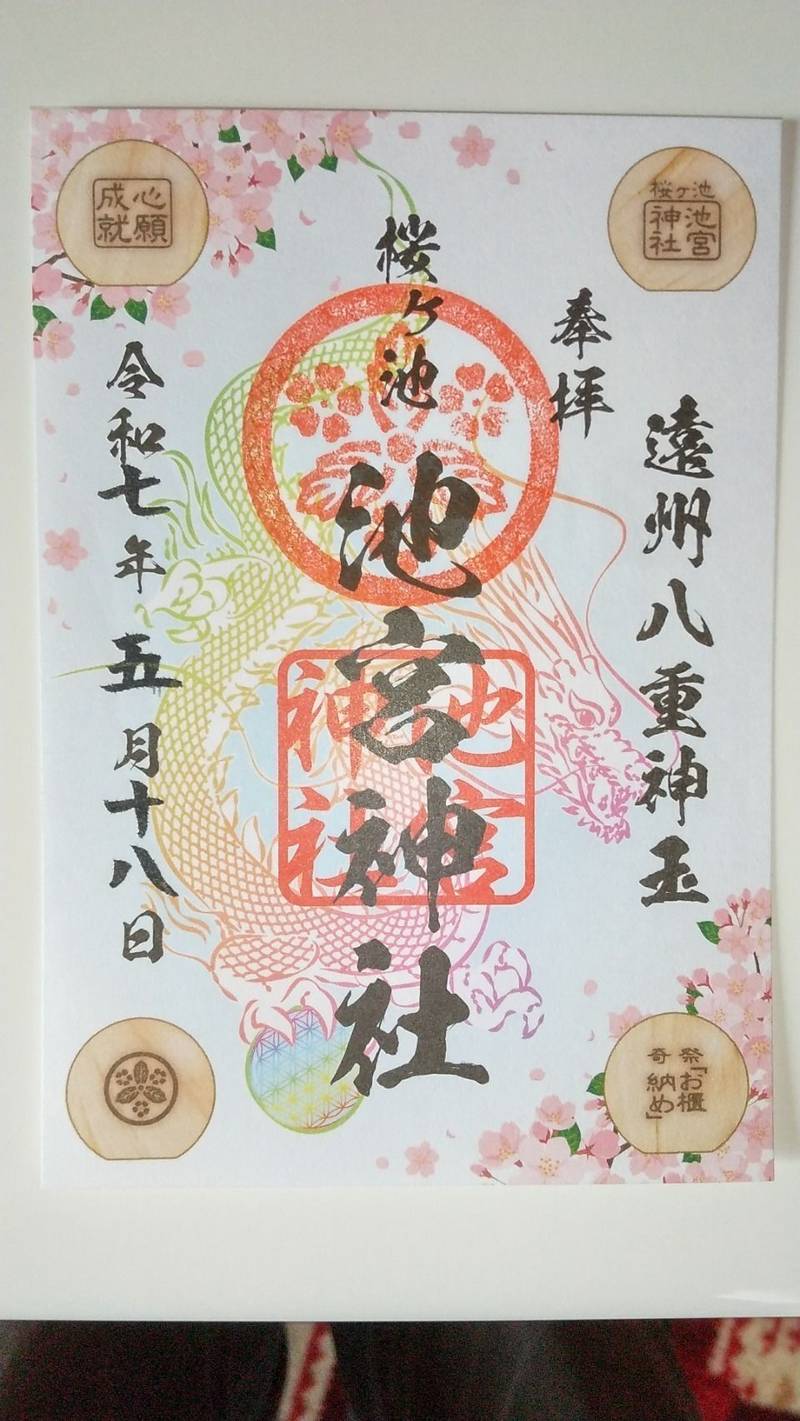 遠州八重神玉
奉拝
桜ヶ池
池宮神社
池宮
神社
令和七年五月十八日
桜ヶ池
池宮
神社
心願
成就
奇祭「お櫃
納め」